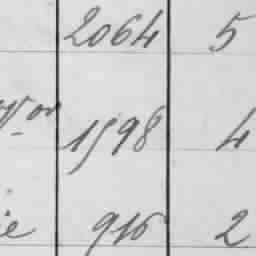 2064 5
1598 4
ie 916 2